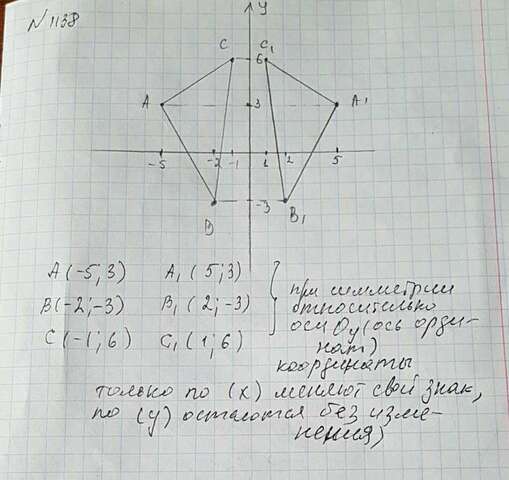 N 1138
y
C C₁
6
A 3 A₁
-5 -2 -1 1 2 5
-3
B B₁
A(-5;3) A₁(5;3)
B(-2;-3) B₁(2;-3)
C(-1;6) C₁(1;6)
при симметрии
относительно
оси Oy (ось орди-
нат)
координаты
только по (x) меняют свой знак,
по (y) остаются без изме-
нения)